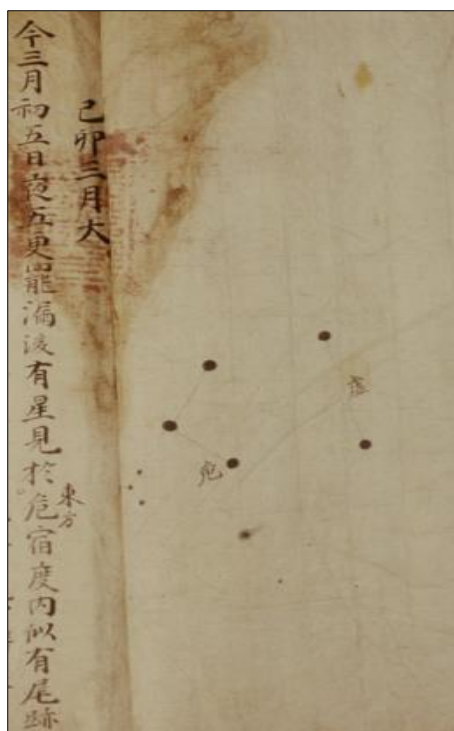 虛
危
己卯三月大
東方
今三月初五日夜五更罷漏後有星見於危宿度內似有尾跡